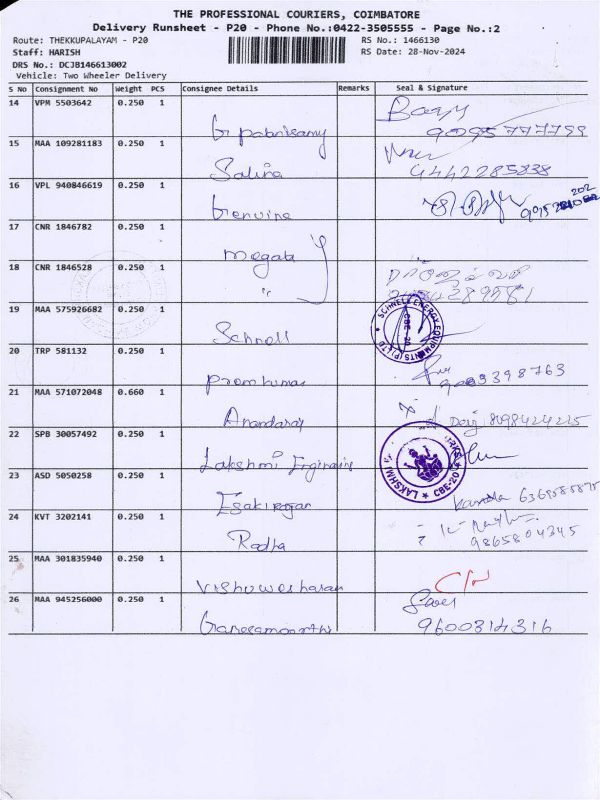 THE PROFESSIONAL COURIERS, COIMBATORE
Delivery Runsheet - P20 - Phone No.:0422-3505555 - Page No.:2
Route: THEKKUPALAYAM - P20
RS No.: 1466130
Staff: HARISH
RS Date: 28-Nov-2024
DRS No.: DCJB146613002
Vehicle: Two Wheeler Delivery
S No Consignment No Weight PCS Consignee Details Remarks Seal & Signature
14 VPM 5503642 0.250 1
9095777799
15 MAA 109281183 0.250 1 Salina
9442285838
16 VPL 940846619 0.250 1 Genuine
17 CNR 1846782 0.250 1 Megala
18 CNR 1846528 0.250 1 "
19 MAA 575926682 0.250 1 Schnell
SCHNELL ENERGY EQUIPMENTS (P) LTD
CBE-20
20 TRP 581132 0.250 1 Premkumar
21 MAA 571072048 0.660 1 Anandaraj
8098424225
22 SPB 30057492 0.250 1 Lakshmi
LAKSHMI
CBE-20
23 ASD 5050258 0.250 1
24 KVT 3202141 0.250 1 Radha
9865804345
25 MAA 301835940 0.250 1 Vishuwesharan
26 MAA 945256000 0.250 1 Ganesamoorthi
9600814316